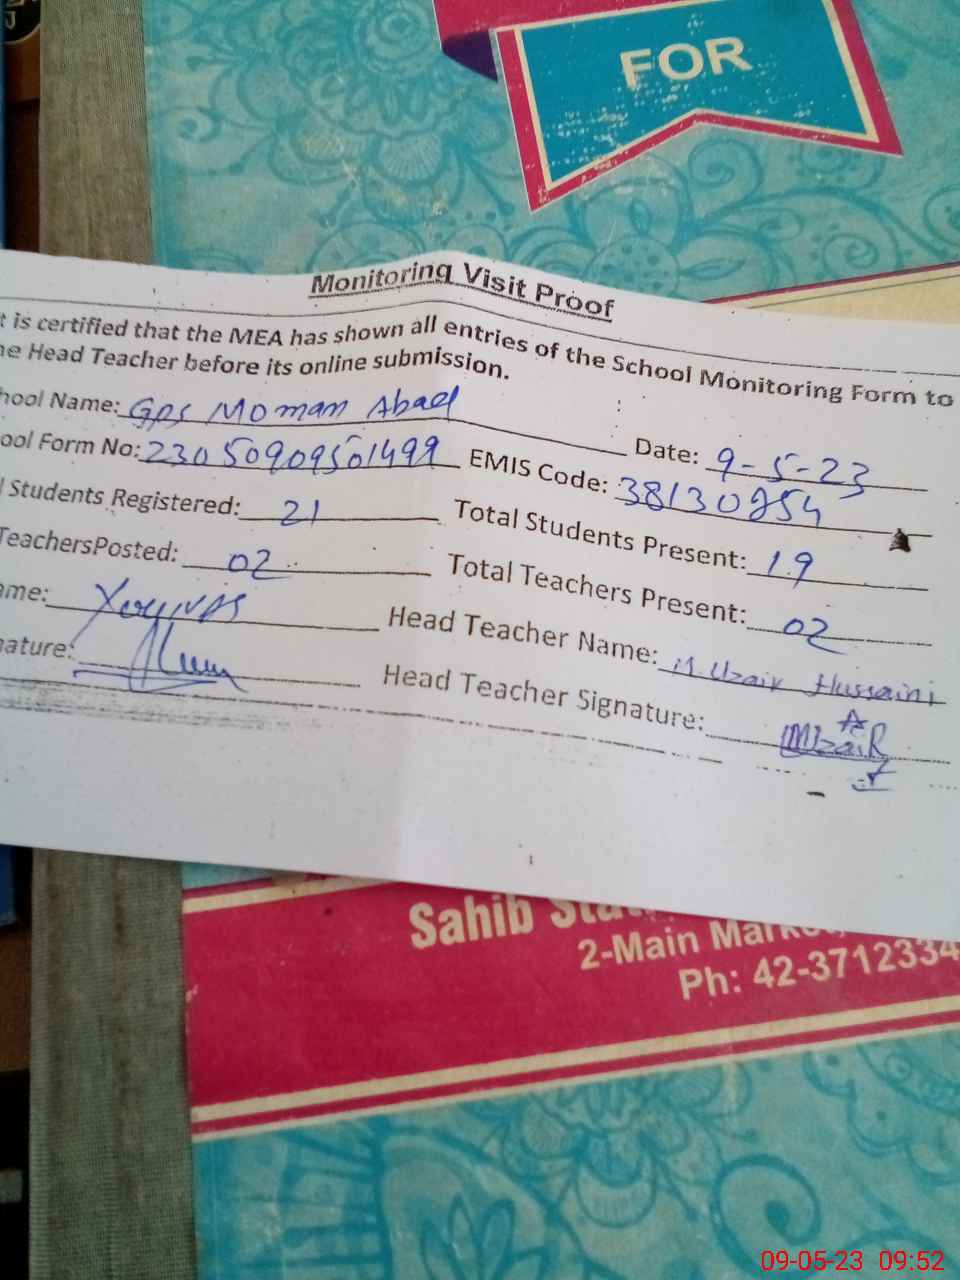 FOR
Monitoring Visit Proof
t is certified that the MEA has shown all entries of the School Monitoring Form to
he Head Teacher before its online submission.
hool Name: GPS Moman Abad
Date: 9-5-23
ool Form No: 23050909501499 EMIS Code:
l Students Registered: 21 Total Students Present: 19
TeachersPosted: 02 Total Teachers Present: 02
ame: Head Teacher Name: M. Uzair Hussaini
nature: Head Teacher Signature: MUzaiR
Sahib
2-Main Market,
Ph: 42-3712334
09-05-23 09:52